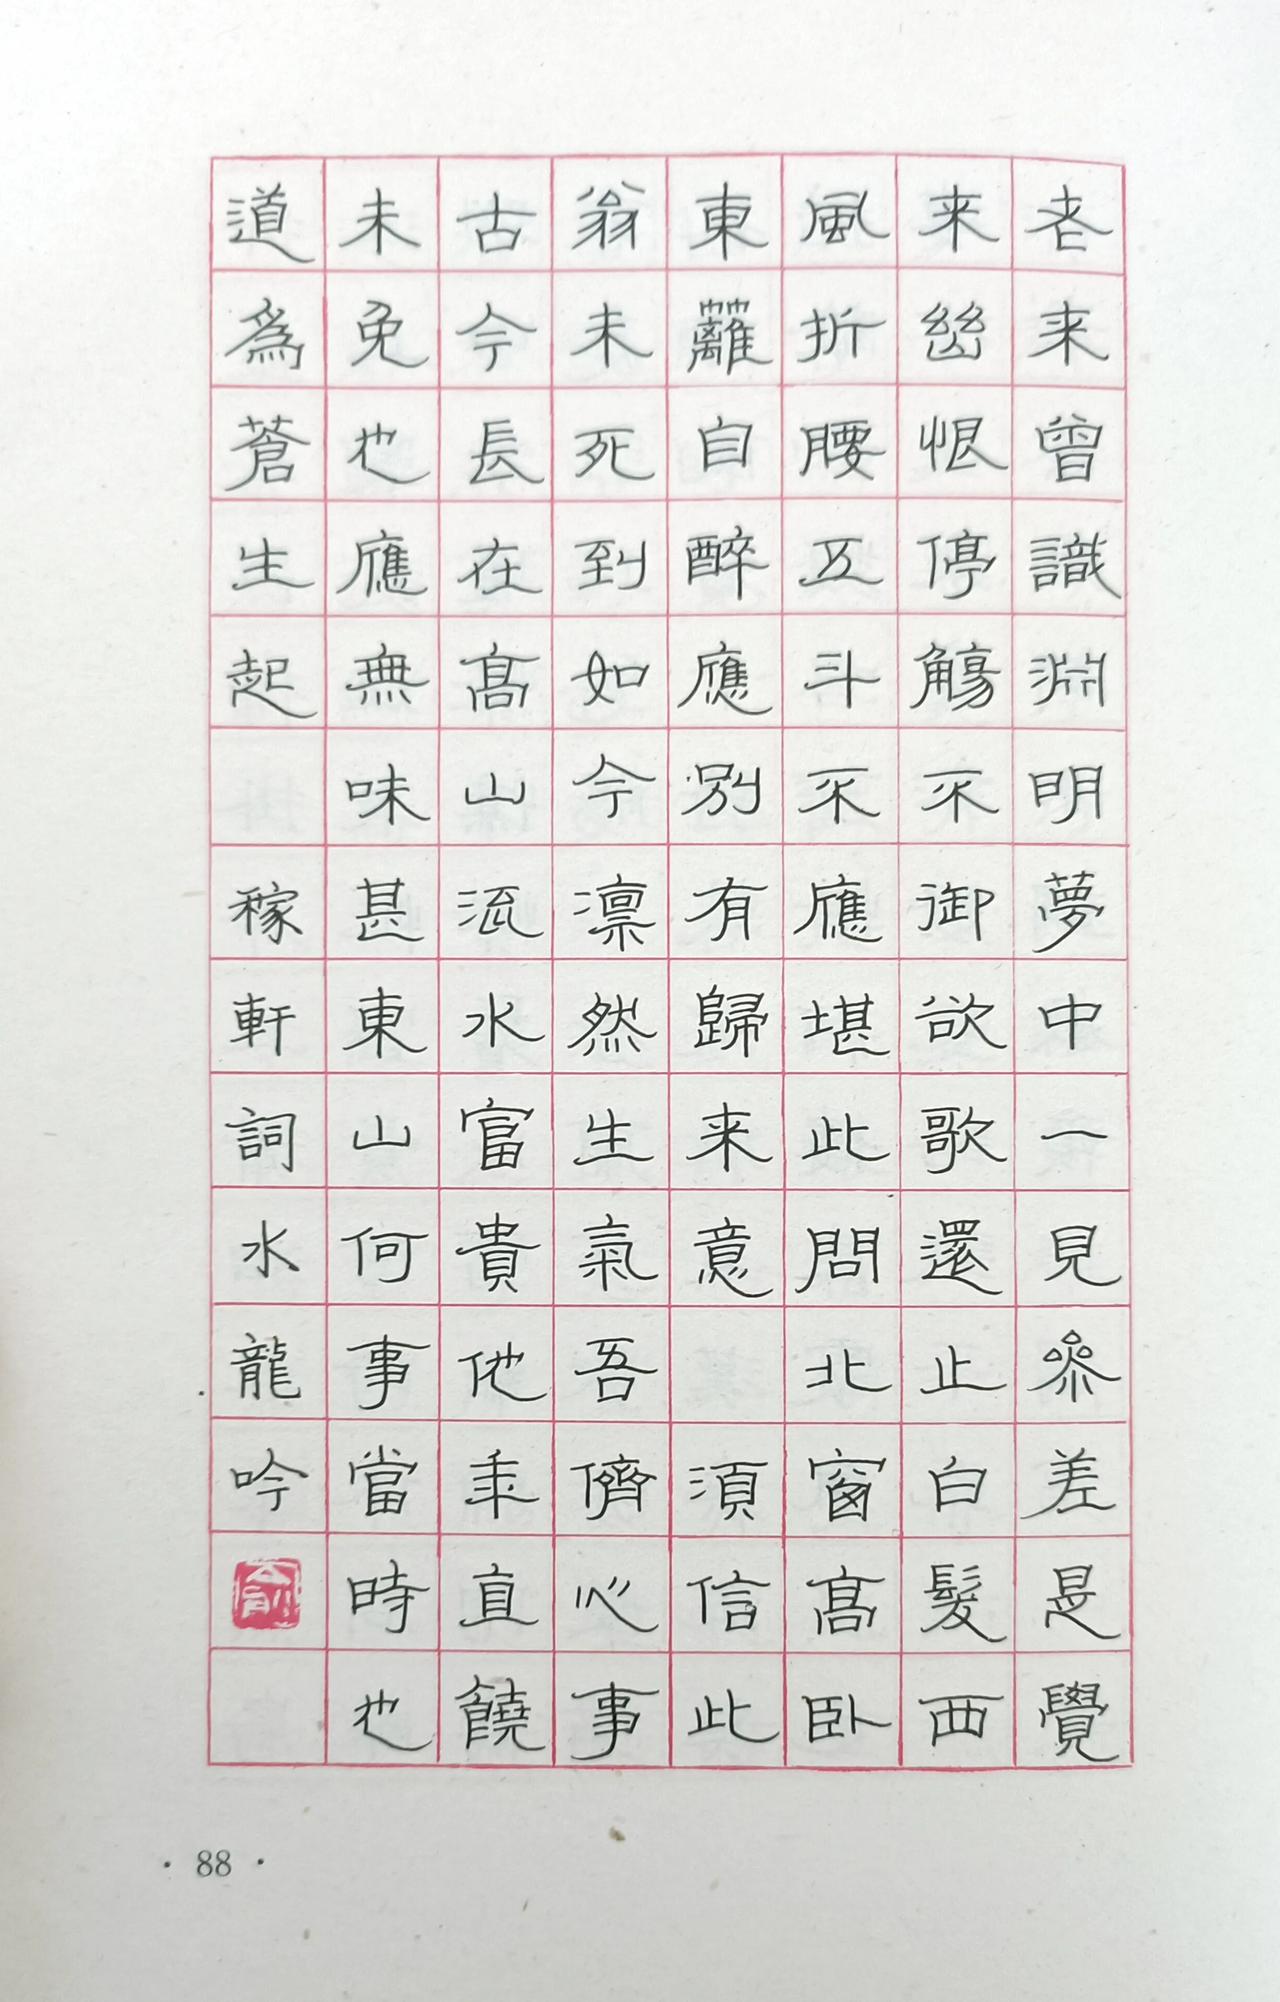 老来曾識淵明夢中一見參差是覺
来幽恨停觴不御欲歌還止白髮西
風折腰五斗不應堪此問北窗高卧
東籬自醉應別有歸来意 須信此
翁未死到如今凛然生氣吾儕心事
古今長在高山流水富貴他年直饒
未免也應無味甚東山何事當時也
道為蒼生起 稼軒詞水龍吟
· 88 ·